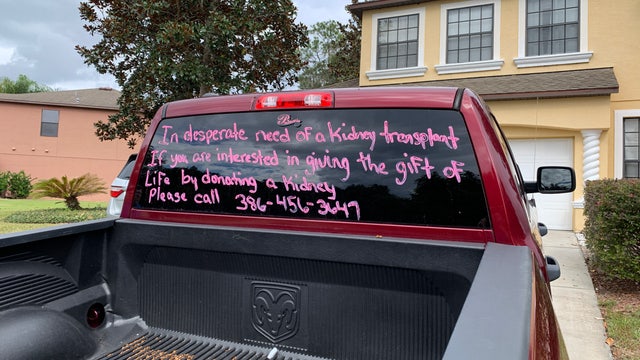 In desperate need of a Kidney transplant
If you are interested in giving the gift of
Life by donating a Kidney
Please call 386-456-3647